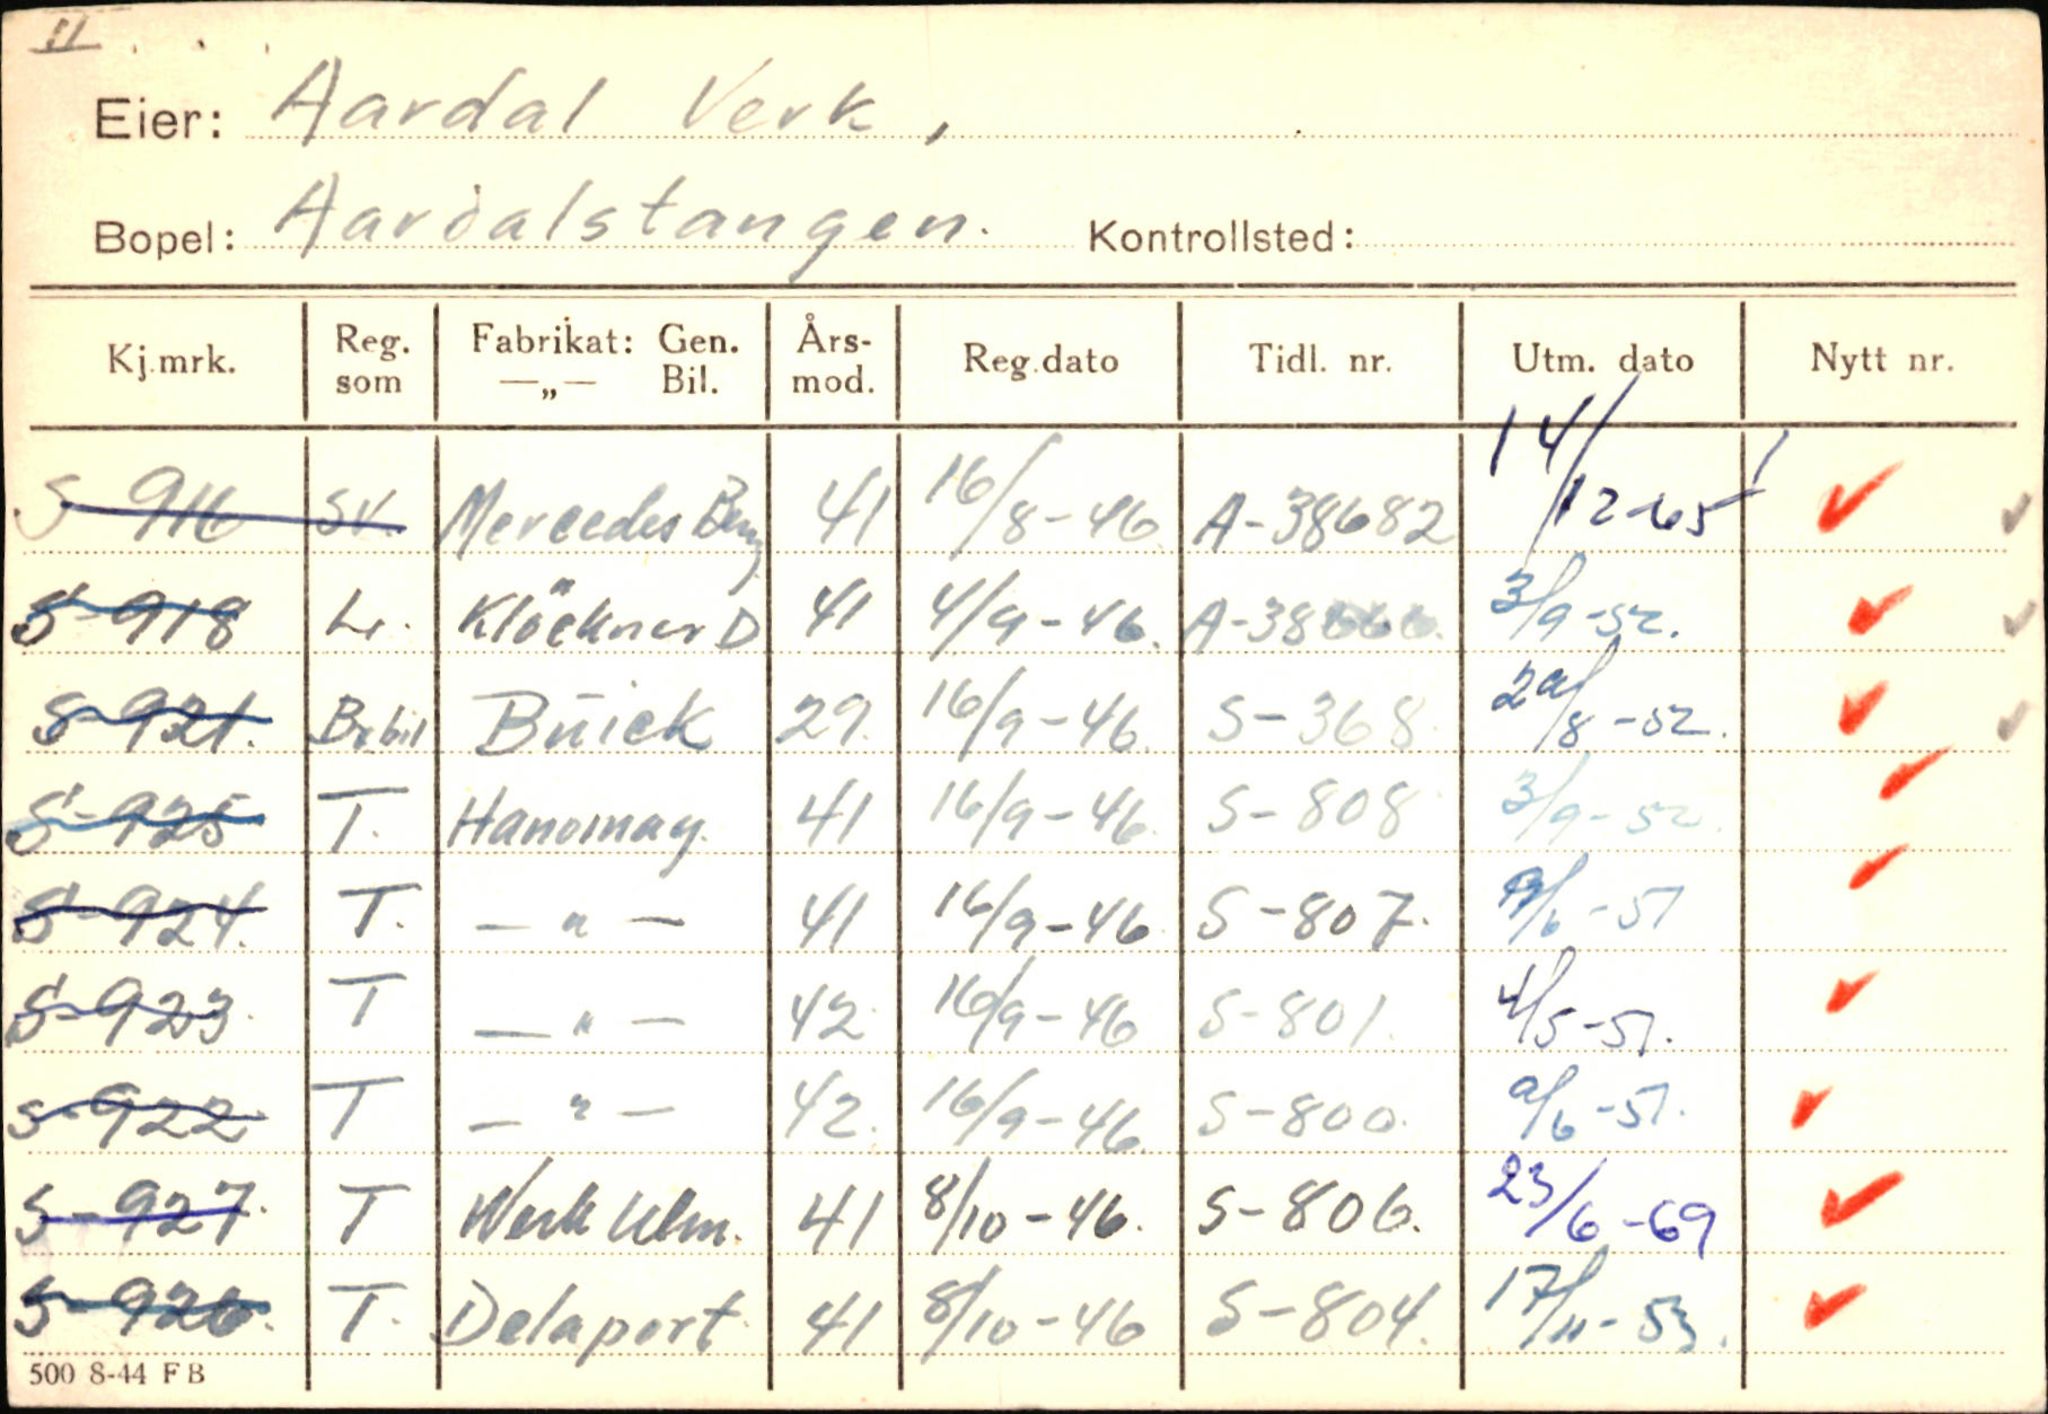 II
Eier: Aardal Verk,
Bopel: Aardalstangen. Kontrollsted:
Kj.mrk. Reg. som Fabrikat: Gen. —„— Bil. Års-mod. Reg.dato Tidl. nr. Utm. dato Nytt nr.
S-916 SV. Mercedes Benz 41 16/8-46. A-38682 14/12-65
S-918 Lr. Klöckner D 41 4/9-46. 3/9-52.
S-921. Brbil Buick 29. 16/9-46. S-368. 29/8-52.
S-925 T. Hanomag. 41 16/9-46. S-808 3/9-52.
S-924. T. —"— 41 16/9-46 S-807. /6-51
S-923. T —"— 42 16/9-46 S-801. 4/5-51.
S-922 T —"— 42. 16/9-46. S-800. 9/6-51.
S-927. T Werk Ulm. 41 8/10-46. S-806. 23/6-69
S-926. T. Delaport 41 8/10-46 S-804. 17/11-53.
500 8-44 F B